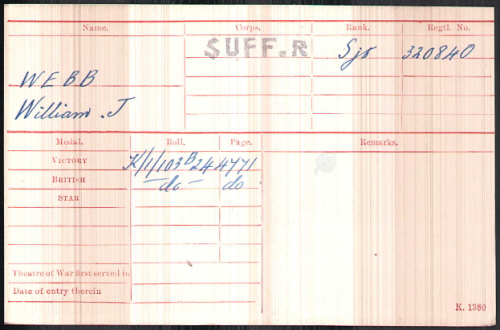 Name. Corps. Rank. Regtl. No.
SUFF.R Sjt 320840
WEBB
William .J
Medal. Roll. Page. Remarks.
VICTORY K/1/103B24 4771
BRITISH —do— do
STAR
Theatre of War first served in
Date of entry therein
K. 1380